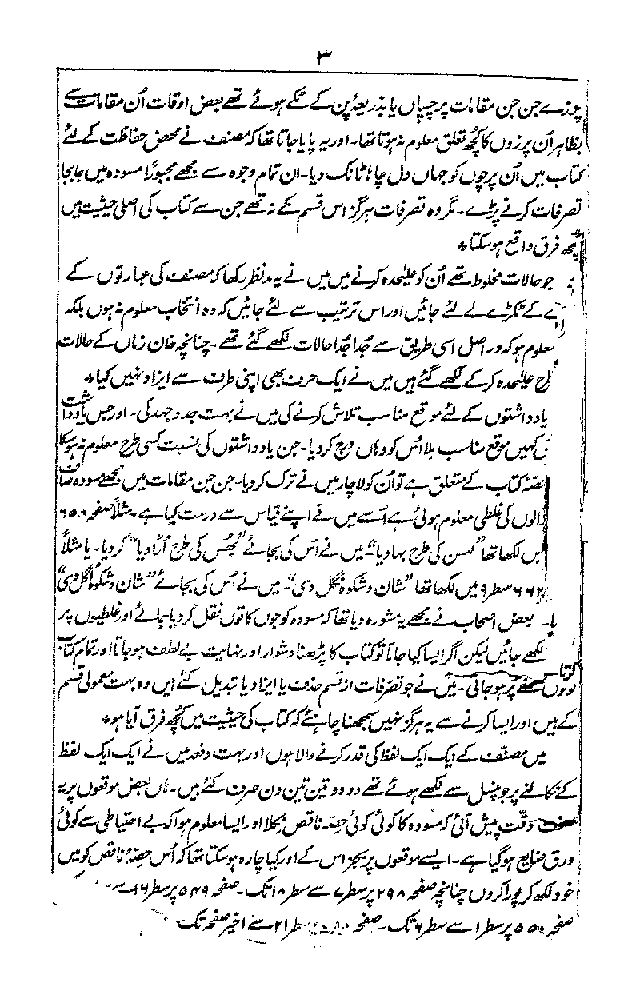 ۳
پرزے جن جن مقامات پر چسپاں یا بذریعہ پن کے لگے ہوئے تھے بعض اوقات اُن مقامات سے
بظاہر اُن پرزوں کا کچھ تعلق معلوم نہ ہوتا تھا۔ اور یہ پایا جاتا تھا کہ مصنف نے محض حفاظت کے لئے
کتاب میں اُن پرچوں کو جہاں دل چاہا ٹانک دیا۔ ان تمام وجوہ سے مجھے مجبوراً مسودہ میں جابجا
تصرفات کرنے پڑے۔ مگر وہ تصرفات ہرگز اس قسم کے نہ تھے جن سے کتاب کی اصلی حیثیت میں
کچھ فرق واقع ہو سکتا٭
جو حالات مخلوط تھے اُن کو علیحدہ کرنے میں میں نے یہ مدنظر رکھا کہ مصنف کی عبارتوں کے
کے ٹکڑے لے لئے جائیں اور اس ترتیب سے لئے جائیں کہ وہ انتخاب معلوم نہ ہوں بلکہ
معلوم ہو کہ دراصل اسی طریق سے جُدا جُدا حالات لکھے گئے تھے۔ چنانچہ خان زماں کے حالات
طرح علیحدہ کرکے لکھے گئے ہیں میں نے ایک حرف بھی اپنی طرف سے ایزاد نہیں کیا٭
یادداشتوں کے لئے موقع مناسب تلاش کرنے کی میں نے بہت جدوجہد کی۔ اور جس یادداشت
کہیں موقع مناسب ملا اُس کو وہاں درج کردیا۔ جن یادداشتوں کی نسبت کسی طرح معلوم نہ ہو سکا
حصہ کتاب کے متعلق ہے تو اُن کو لاچار میں نے ترک کر دیا۔ جن جن مقامات میں مجھے مسودہ صاف
والوں کی غلطی معلوم ہوئی ہے اُسے میں نے اپنے قیاس سے درست کیا ہے۔ مثلاً صفحہ ۶۵۸
میں لکھا تھا "خسن کی طرح بہا دیا" میں نے اُس کی بجائے "بھُس کی طرح اُڑا دیا" کر دیا۔ یا مثلاً
۶۶۲ سطر ۹ میں لکھا تھا "شان و شکوہ نکل دی"۔ میں نے اُس کی بجائے "شان و شکوہ اُگل دی"
بعض اصحاب نے مجھے یہ مشورہ دیا تھا کہ مسودہ کو جوں کا توں نقل کر دیا جائے اور غلطیوں پر
لکھے جائیں لیکن اگر ایسا کیا جاتا تو کتاب کا پڑھنا دشوار اور نہایت بے لطف ہو جاتا اور تمام کتاب
نوٹوں سے پُر ہو جاتی۔ میں نے جو تصرفات از قسم حذف یا ایزاد یا تبدیل کئے ہیں وہ بہت معمولی قسم
کے ہیں۔ اور ایسا کرنے سے یہ ہرگز نہیں سمجھنا چاہئے کہ کتاب کی حیثیت میں کچھ فرق آیا ہو٭
میں مصنف کے ایک ایک لفظ کی قدر کرنے والا ہوں اور بہت دفعہ میں نے ایک ایک لفظ
کے نکالنے پر جو پنسل سے لکھے ہوئے تھے دو دو تین تین دن صرف کئے ہیں۔ ہاں بعض موقعوں پر یہ
دقت پیش آئی کہ مسودہ کا کوئی کوئی حصہ ناقص نکلا اور ایسا معلوم ہوا کہ بے احتیاطی سے کوئی
ورق ضایع ہو گیا ہے۔ ایسے موقعوں پر بجز اس کے اور کیا چارہ ہو سکتا تھا کہ اُس حصہ ناقص کو میں
خود لکھ کر پورا کروں چنانچہ صفحہ ۲۹۸ پر سطر ۷ سے سطر ۱۸ تک۔ صفحہ ۵۴۹ پر سطر ۱۶ سے
صفحہ ۵۵۰ پر سطر ۱ سے سطر ۶ تک۔ صفحہ پر سطر ۲۱ سے اخیر صفحہ تک